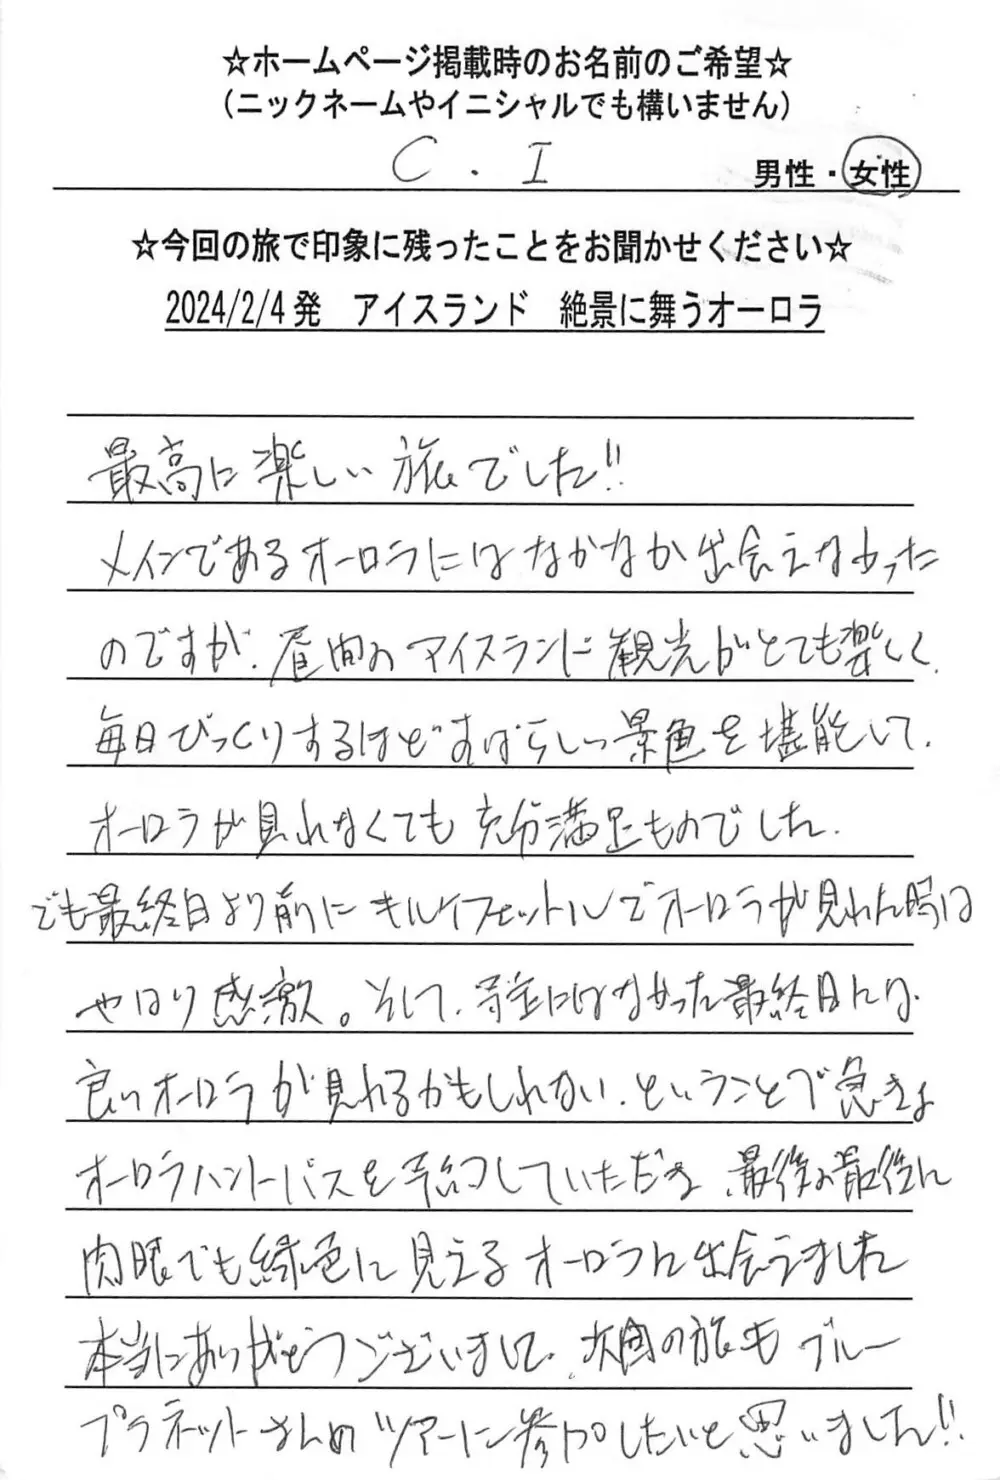 ☆ホームページ掲載時のお名前のご希望☆
(ニックネームやイニシャルでも構いません)
C.I 男性・女性
☆今回の旅で印象に残ったことをお聞かせください☆
2024/2/4発 アイスランド 絶景に舞うオーロラ
最高に楽しい旅でした!!
メインであるオーロラにはなかなか出会えなかった
のですが、昼間のアイスランド観光がとても楽しく、
毎日びっくりするほどすばらしい景色を堪能して、
オーロラが見れなくても充分満足ものでした。
でも最終日より前にキルイフェットルでオーロラが見れた時は
やはり感激。そして、予定にはなかった最終日には、
良いオーロラが見れるかもしれない、ということで急きょ
オーロラハントバスを予約していただき、最後の最後に
肉眼でも緑色に見えるオーロラに出会えました
本当にありがとうございまして、次回の旅も ブルー
プラネットさんのツアーに参加したいと思いました!!